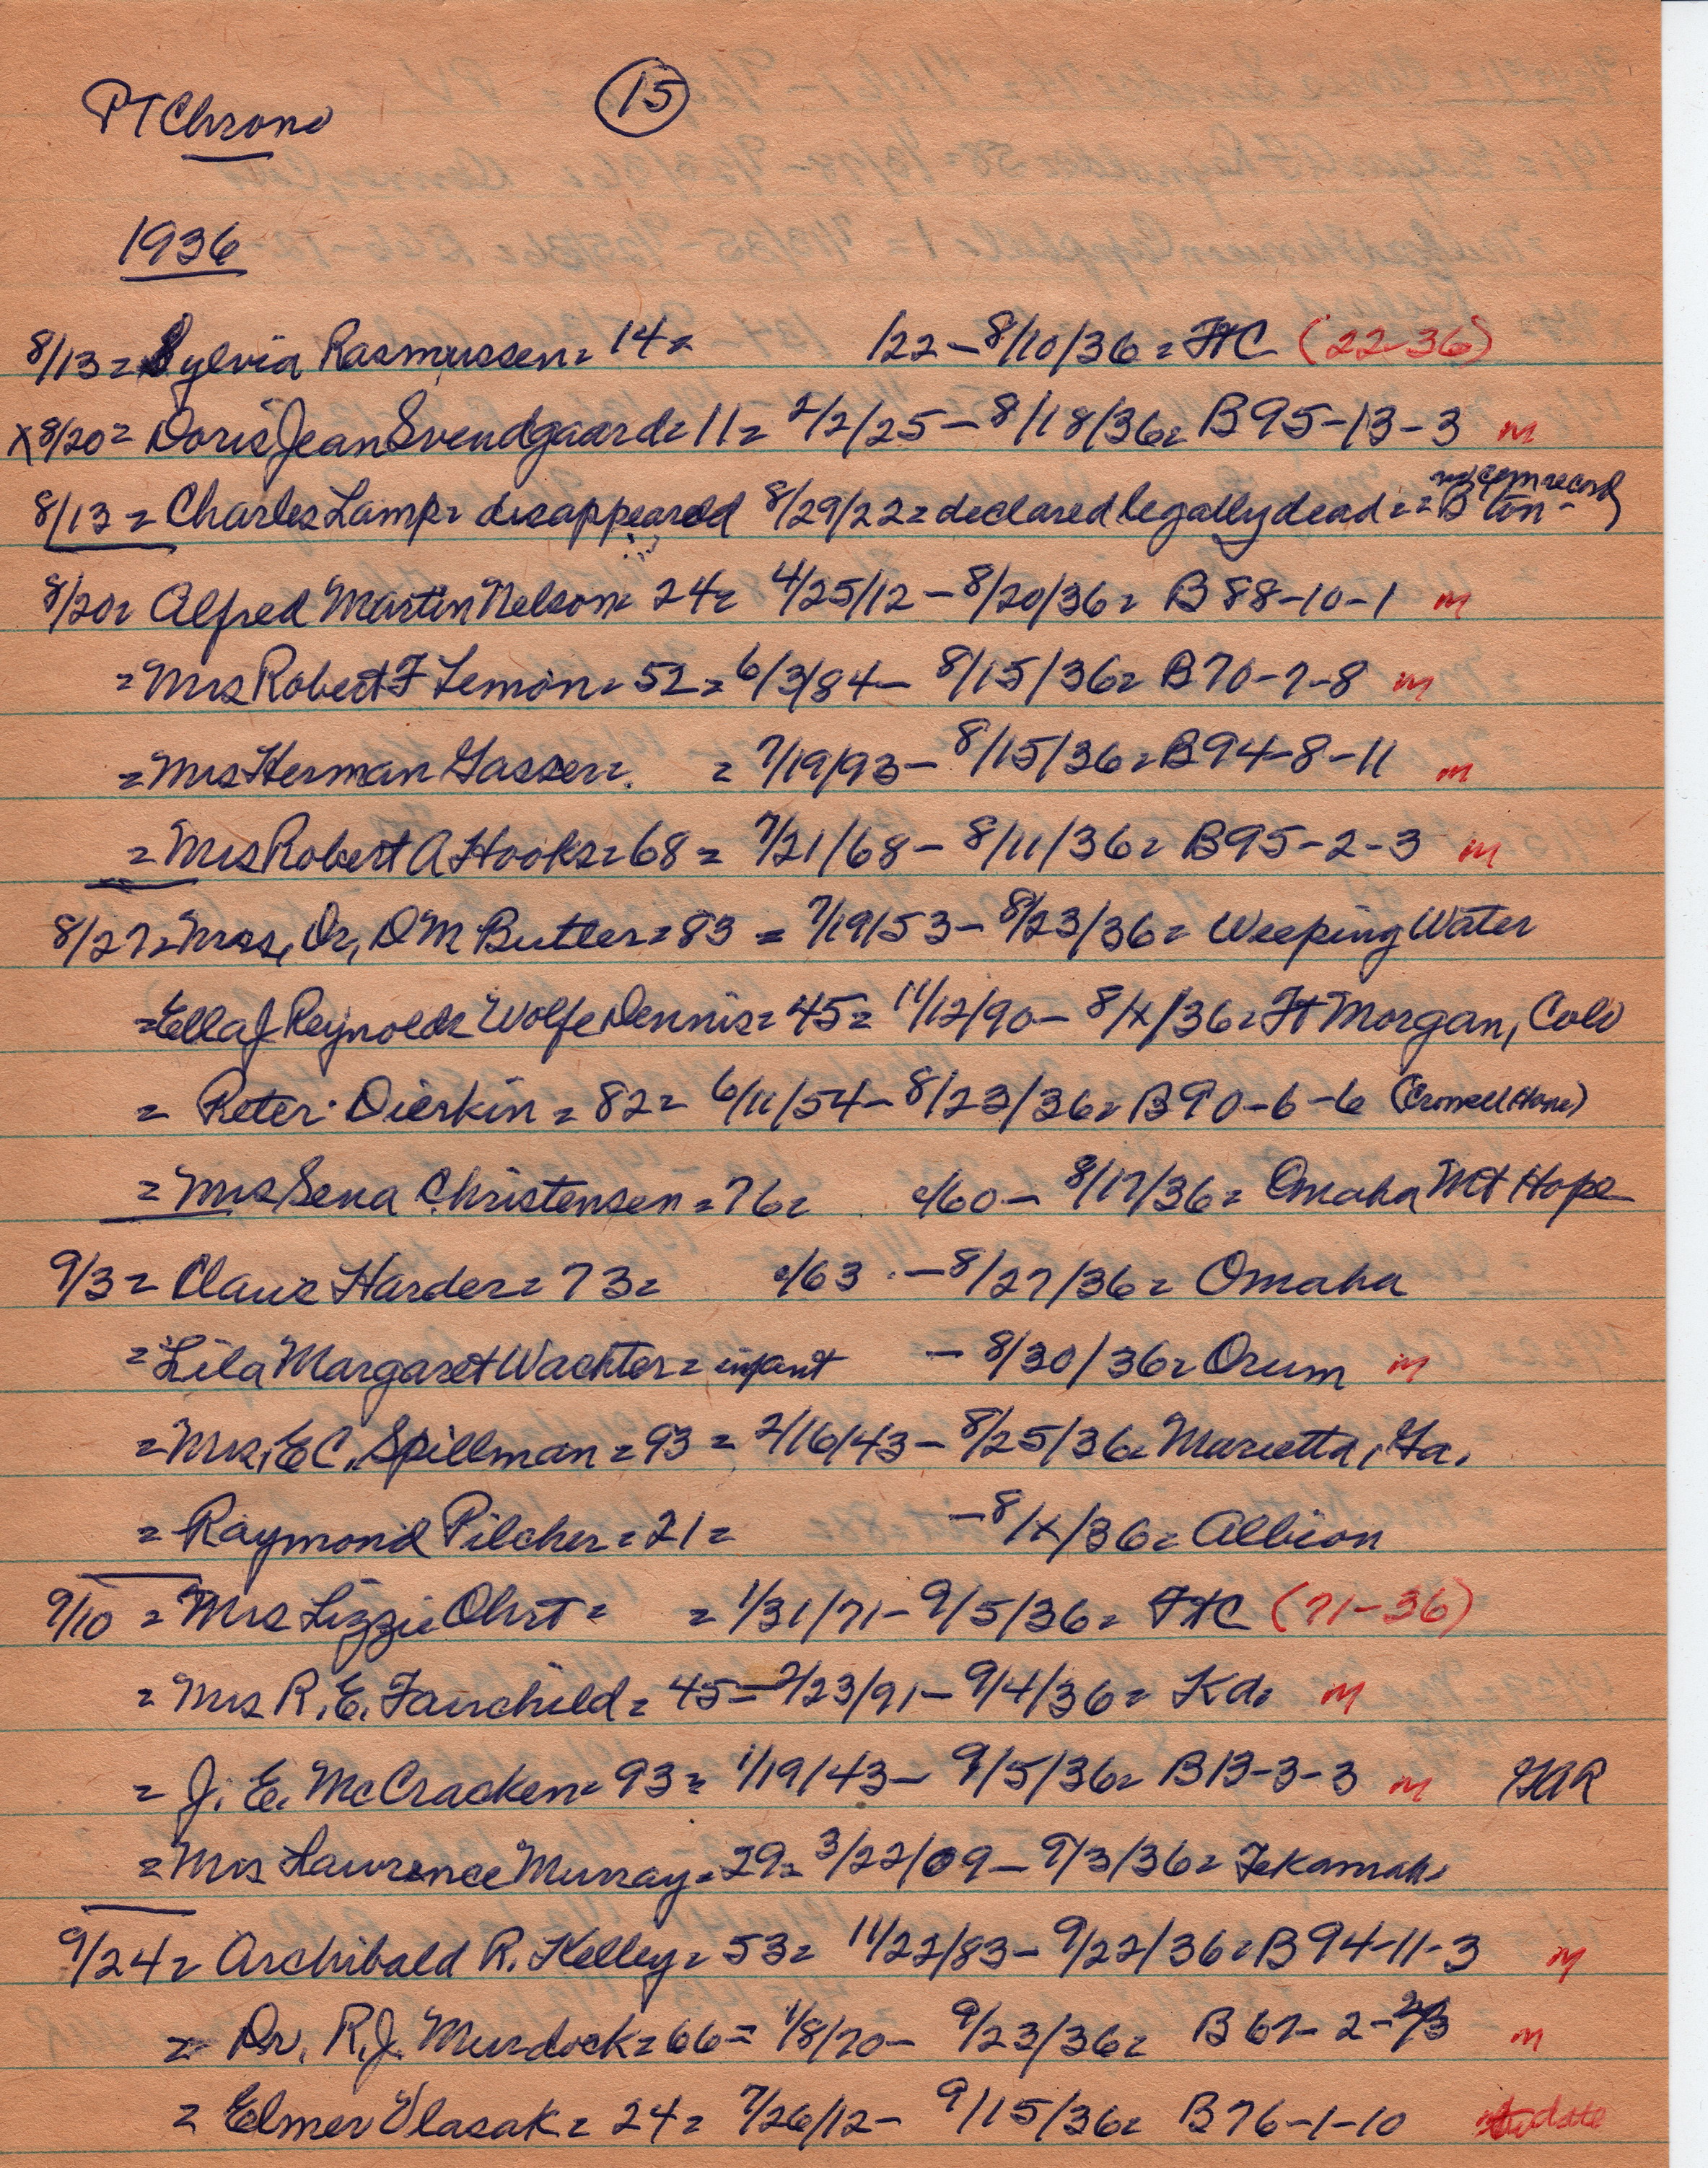 PT Chrono 15
1936
8/13 = Sylvia Rasmussen = 14 = /22 - 8/10/36 = FtC (22-36)
X 8/20 = Doris Jean Svendgaard = 11 = 2/2/25 - 8/18/36 = B95-13-3 m
8/13 = Charles Lamp = disappeared 8/29/22 = declared legally dead = = B ton - no cem record
8/20 = Alfred Martin Nelson = 24 = 4/25/12 - 8/20/36 = B 88-10-1 m
= Mrs Robert F Lemon = 52 = 6/3/84 - 8/15/36 = B70-7-8 m
= Mrs Herman Gasser = = 7/19/93 - 8/15/36 = B94-8-11 m
= Mrs Robert A Hooks = 68 = 7/21/68 - 8/11/36 = B95-2-3 m
8/27 = Mrs, Dr, DM Butler = 83 = 7/19/53 - 8/23/36 = Weeping Water
= Ella J Reynolds Wolfe Dennis = 45 = 11/12/90 - 8/x/36 = Ft Morgan, Colo
= Peter Dierkin = 82 = 6/11/54 - 8/23/36 = B90-6-6 (Crowell Home)
= Mrs Sena Christensen = 76 = c/60 - 8/17/36 = Omaha Mt Hope
9/3 = Claus Harder = 73 = c/63 - 8/27/36 = Omaha
= Lila Margaret Wachter = infant - 8/30/36 = Orum m
= Mrs, E C, Spillman = 93 = 2/16/43 - 8/25/36 = Marietta, Ga.
= Raymond Pilcher = 21 = - 8/x/36 = Albion
9/10 = Mrs Lizzie Ohrt = = 1/31/71 - 9/5/36 = FtC (71-36)
= Mrs R. E. Fairchild = 45 = 2/23/91 - 9/4/36 = Kd. m
= J. E. McCracken = 93 = 1/19/43 - 9/5/36 = B13-3-3 m GAR
= Mrs Lawrence Murray = 29 = 3/22/09 - 9/3/36 = Tekamah
9/24 = Archibald R. Kelley = 53 = 11/22/83 - 9/22/36 = B94-11-3 m
= Dr. R.J. Murdock = 66 = 1/8/70 - 9/23/36 = B67-2-2/3 m
= Elmer Vlasak = 24 = 7/26/12 - 9/15/36 = B76-1-10 date